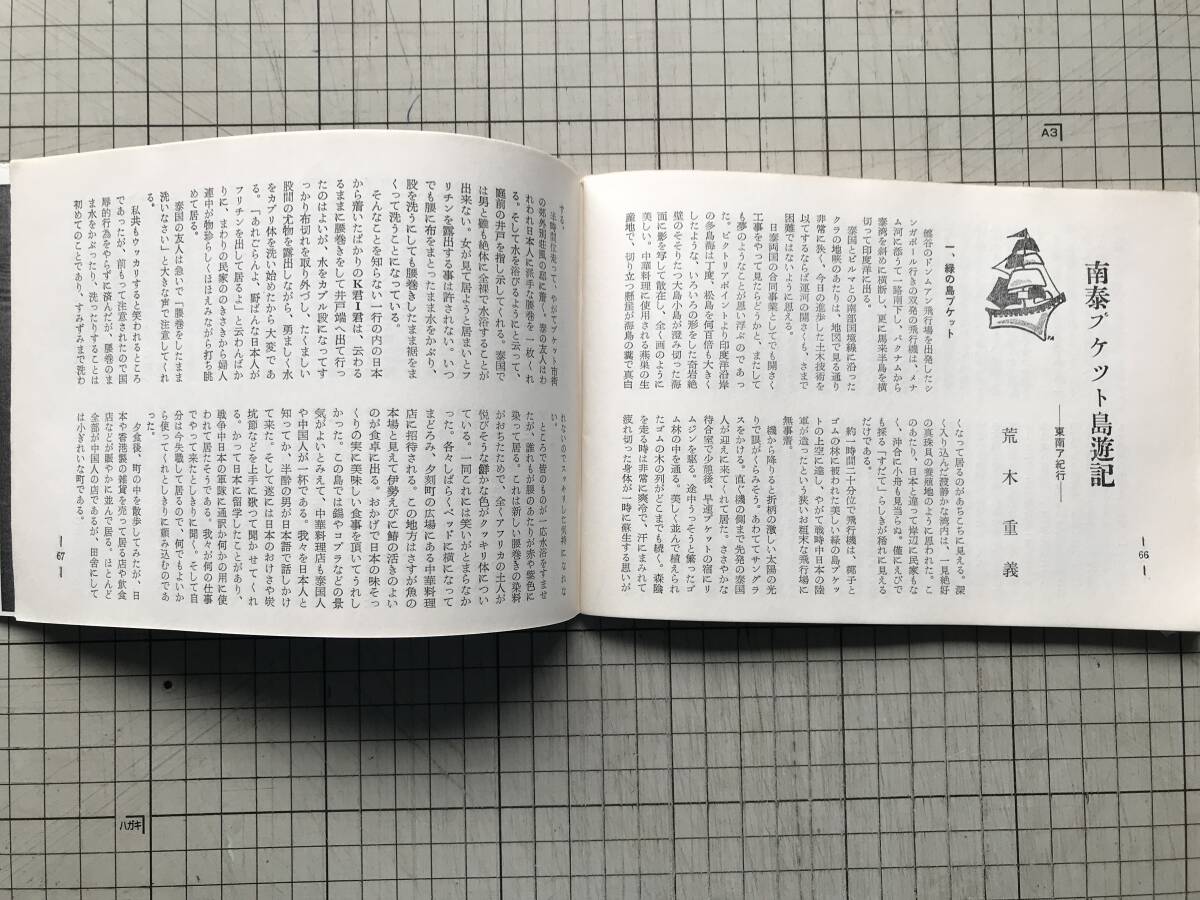 南泰プケット島遊記
―東南ア紀行―
荒木重義
一、緑の島プケット
盤谷のドンムアン飛行場を出発したシ
ンガポール行きの双発の飛行機は、メナ
ム河に添うて一路南下し、パタナムから
泰湾を斜めに横断し、更に馬来半島を横
切って印度洋に出る。
泰国とビルマとの南部国境線に沿った
クラの地峡のあたりは、地図で見る通り
非常に狭く、今日の進歩した土木技術を
以てするならば運河の開さくも、さまで
困難ではないように思える。
日泰両国の合同事業としてでも開さく
工事をやって見たらどうかと、またして
も夢のようなことが思い浮ぶのであっ
た。ビクトリアポイントより印度洋沿岸
の多島海は丁度、松島を何百倍も大きく
したような、いろいろの形をした奇岩絶
壁のそそりたつ大島小島が澄み切った海
面に影を写して散在し、全く画のように
美しい。中華料理に使用される燕巣の生
産地で、切り立つ懸崖が海島の糞で真白
くなって居るのがあちこちに見える。深
く入り込んだ波静かな湾内は、一見絶好
の真珠貝の養殖地のように思われた。こ
のあたり、日本と違って岸辺に民家もな
く、沖合に小舟も見当らぬ。僅にえびで
も採る「すだて」らしきが稀れに見える
だけである。
約一時間二十分位で飛行機は、椰子と
ゴムの林に被われた美しい緑の島プケッ
トの上空に達し、やがて戦時中日本の陸
軍が造ったという狭いお粗末な飛行場に
無事着。
機から降りると折柄の激しい太陽の光
りで眼がくらみそう。あわててサングラ
スをかける。直ぐ機の側まで先発の泰国
人が迎えに来てくれて居た。ささやかな
待合室で少憩後、早速プケットの宿にリ
ムジンを駆る。途中うっそうと繁ったゴ
ム林の中を通る。美しく並んで植えられ
たゴムの木の列がどこまでも続く。森陰
を走る時は非常に爽冷で、汗にまみれて
疲れ切った身体が一時に蘇生する思いが
―66―
する。
半時間位走って、やがてプケット市街
の郊外別荘風の邸に着く。泰の友人はわ
れわれ日本人に派手な腰巻を一枚くれ
る。そして水を浴びるようにと云って、
庭前の井戸を指し示してくれる。泰国で
は男と雖も絶体に全裸で水浴することが
出来ない。女が見て居ようと居まいとフ
リチンを露出する事は許されない。いつ
でも腰に布をまとったまま水をかぶり、
股を洗うにしても腰巻きしたまま裾をま
くって洗うことになっている。
そんなことを知らない一行の内の日本
から着いたばかりのK君I君は、云わる
るままに腰巻きをして井戸端へ出て行っ
たのはよいが、水をカブル段になってす
っかり布切れを取り外づし、たくましい
股間の尤物を露出しながら、勇ましく水
をカブり体を洗い始めたから大変であ
る。「あれごらんよ、野ばんな日本人が
フリチンを出して居るよ」と云わんばか
りに、まわりの民家ののきさきから婦人
連中が物珍らしくほほえみながら打ち眺
めて居る。
泰国の友人は急いで「腰巻をしたまま
洗いなさい」と大きな声で注意してくれ
る。
私共もウッカリすると笑われるところ
であったが、前もって注意されたので国
辱的行為をやらずに済んだが、腰巻のま
ま水をかぶったり、洗ったりすることは
初めてのことであり、すみずみまで洗わ
れないのでスッキリした気持になれな
い。
ところで皆のものが一応水浴をすませ
たが、誰れもが腰のあたりが赤や紫色に
染って居る。これは新しい腰巻きの染料
がおちたためで、全くアフリカの土人が
悦びそうな鮮かな色がクッキリ体につい
ている。一同これには笑いがとまらなか
った。各々しばらくベッドに横になって
まどろみ、夕刻町の広場にある中華料理
店に招待される。この地方はさすが魚の
本場と見えて伊勢えびに鯔の活きのよい
のが食卓に出る。おかげで日本の味そっ
くりの実に美味しい食事を頂いてうれし
かった。この島では錫やコプラなどの景
気がよいとみえて、中華料理店も泰国人
や中国人が一杯である。我々を日本人と
知ってか、半酔の男が日本語で話しかけ
て来た。そして遂には日本のおけさや炭
坑節などを上手に歌って聞かせてくれ
る。かって日本に留学したことがあり、
戦争中日本の軍隊に通訳か何かの用に使
われて居たそうである。我々が何の仕事
でやって来たとしきりに聞く。そして自
分は今失職して居るので、何でもよいか
ら使ってくれとしきりに頼み込むのであ
った。
夕食後、町の中を散歩してみたが、日
本や香港製の雑貨を売って居る店や飲食
店などが賑やかに並んで居る。ほとんど
全部が中国人の店であるが、田舎にして
は小ぎれいな町である。
―67―
A3
ハガキ